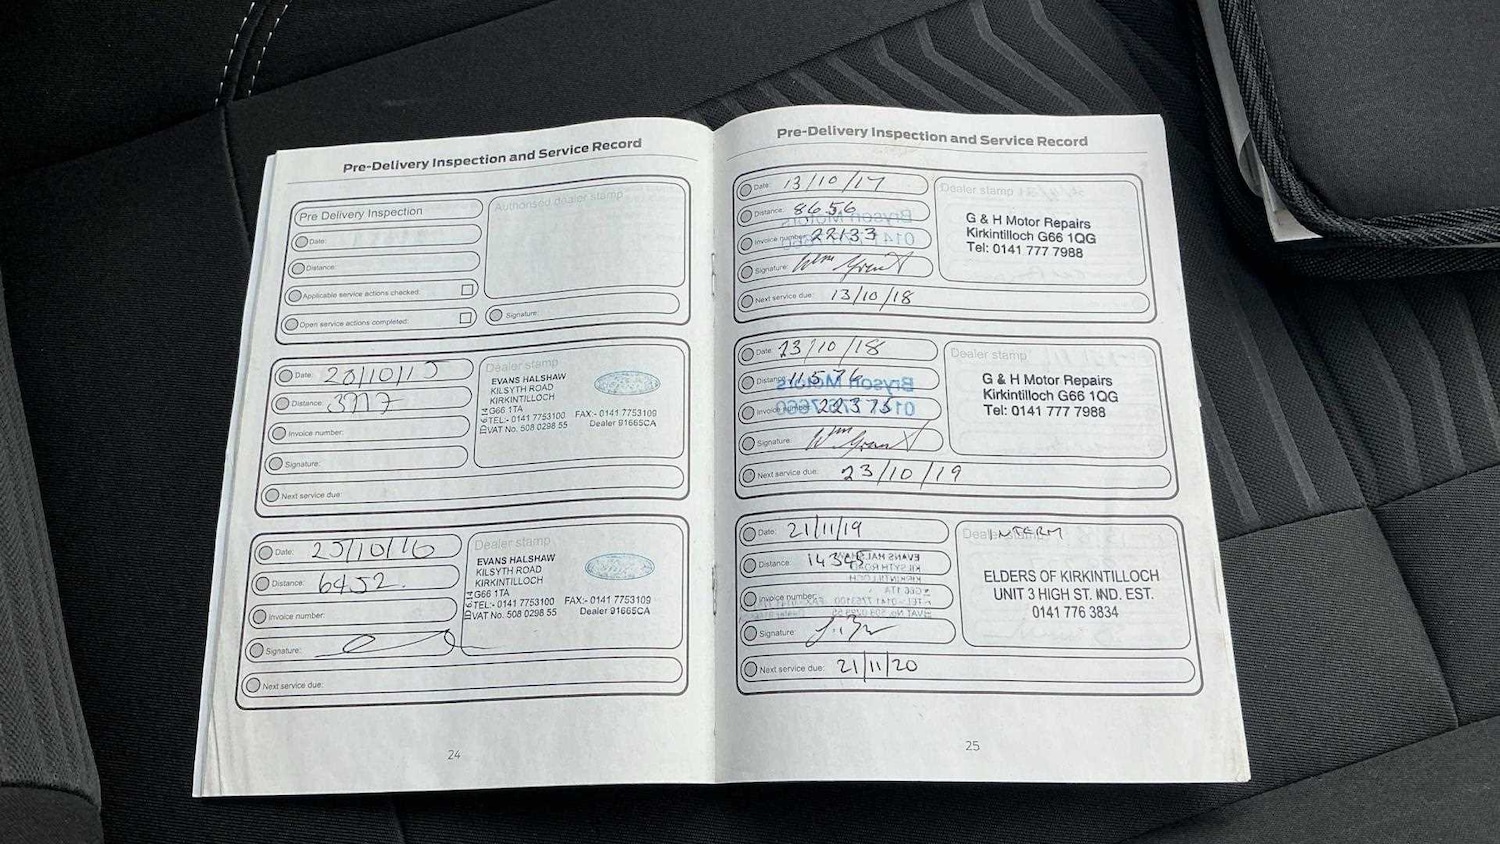 Pre-Delivery Inspection and Service Record
Pre Delivery Inspection
Authorised dealer stamp
Date:
Distance:
Applicable service actions checked:
Open service actions completed:
Signature:
Date: 20/10/15
Distance:
Invoice number:
Signature:
Next service due:
Dealer stamp
EVANS HALSHAW
KILSYTH ROAD
KIRKINTILLOCH
G66 1TA
TEL:- 0141 7753100 FAX:- 0141 7753109
VAT No. 508 0298 55 Dealer 91665CA
Date: 25/10/16
Distance: 6452
Invoice number:
Signature:
Next service due:
Dealer stamp
EVANS HALSHAW
KILSYTH ROAD
KIRKINTILLOCH
G66 1TA
TEL:- 0141 7753100 FAX:- 0141 7753109
VAT No. 508 0298 55 Dealer 91665CA
24
Pre-Delivery Inspection and Service Record
Date: 13/10/17
Distance: 8656
Invoice number: 22133
Signature: Wm Grant
Next service due: 13/10/18
Dealer stamp
G & H Motor Repairs
Kirkintilloch G66 1QG
Tel: 0141 777 7988
Date: 23/10/18
Distance: 11576
Invoice number: 22375
Signature: Wm Grant
Next service due: 23/10/19
Dealer stamp
G & H Motor Repairs
Kirkintilloch G66 1QG
Tel: 0141 777 7988
Date: 21/11/19
Distance:
Invoice number:
Signature:
Next service due: 21/11/20
Dealer stamp
INTERM
ELDERS OF KIRKINTILLOCH
UNIT 3 HIGH ST. IND. EST.
0141 776 3834
25